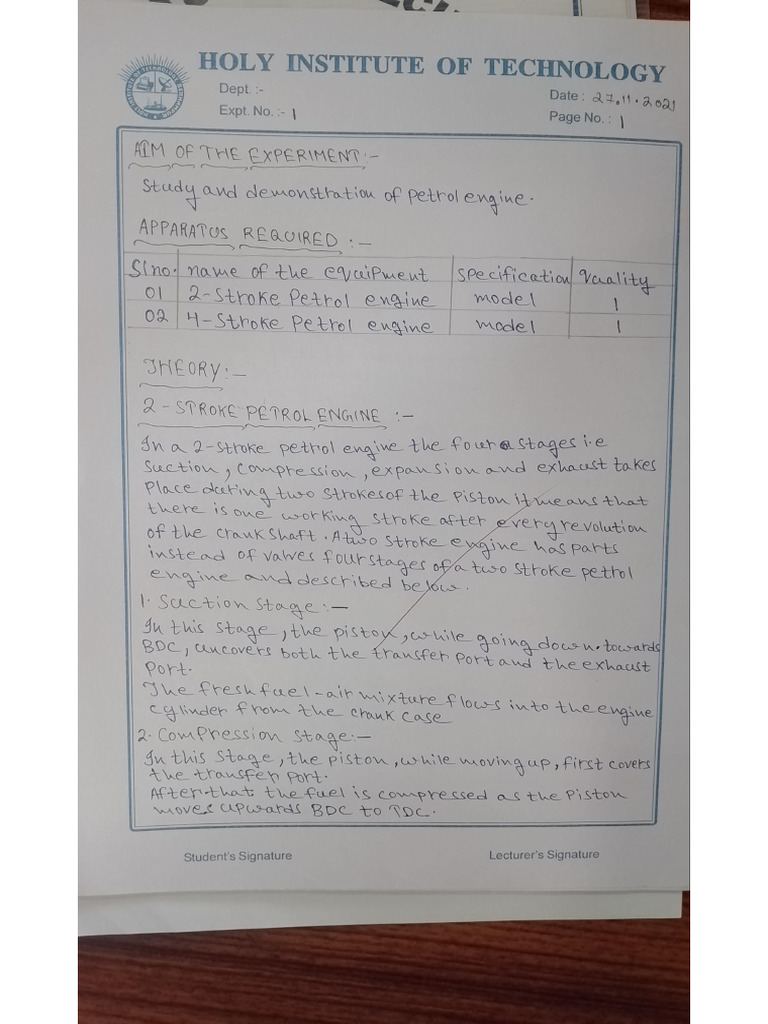 HOLY INSTITUTE OF TECHNOLOGY
Dept. :-
Date : 27.11.2021
Expt. No. :- 1
Page No. : 1
AIM OF THE EXPERIMENT:-
Study and demonstration of petrol engine.
APPARATUS REQUIRED :-
Slno. name of the equipment specification quality
01 2-Stroke Petrol engine model 1
02 4-Stroke Petrol engine model 1
THEORY:-
2-STROKE PETROL ENGINE :-
In a 2-stroke petrol engine the four stages i.e
Suction, Compression, expansion and exhaust takes
Place during two strokes of the Piston it means that
there is one working stroke after every revolution
of the crankshaft. A two stroke engine has parts
instead of valves four stages of a two stroke petrol
engine and described below.
1. Suction stage:-
In this stage, the piston, while going down.towards
BDC, uncovers both the transfer port and the exhaust
Port.
The fresh fuel-air mixture flows into the engine
cylinder from the crank case
2. Compression stage:-
In this stage, the piston, while moving up, first covers
the transfer port.
After that the fuel is compressed as the Piston
moves upwards BDC to TDC.
Student's Signature
Lecturer's Signature